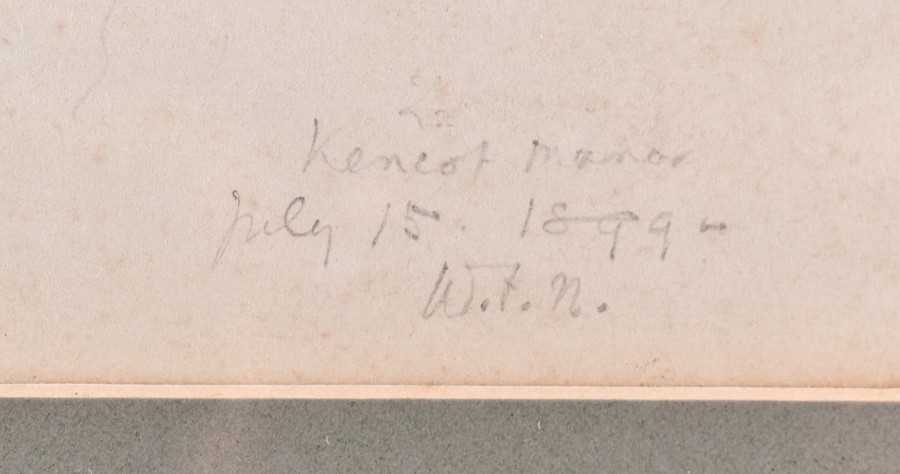 Kencot Manor
July 15. 1899-
W.F.N.